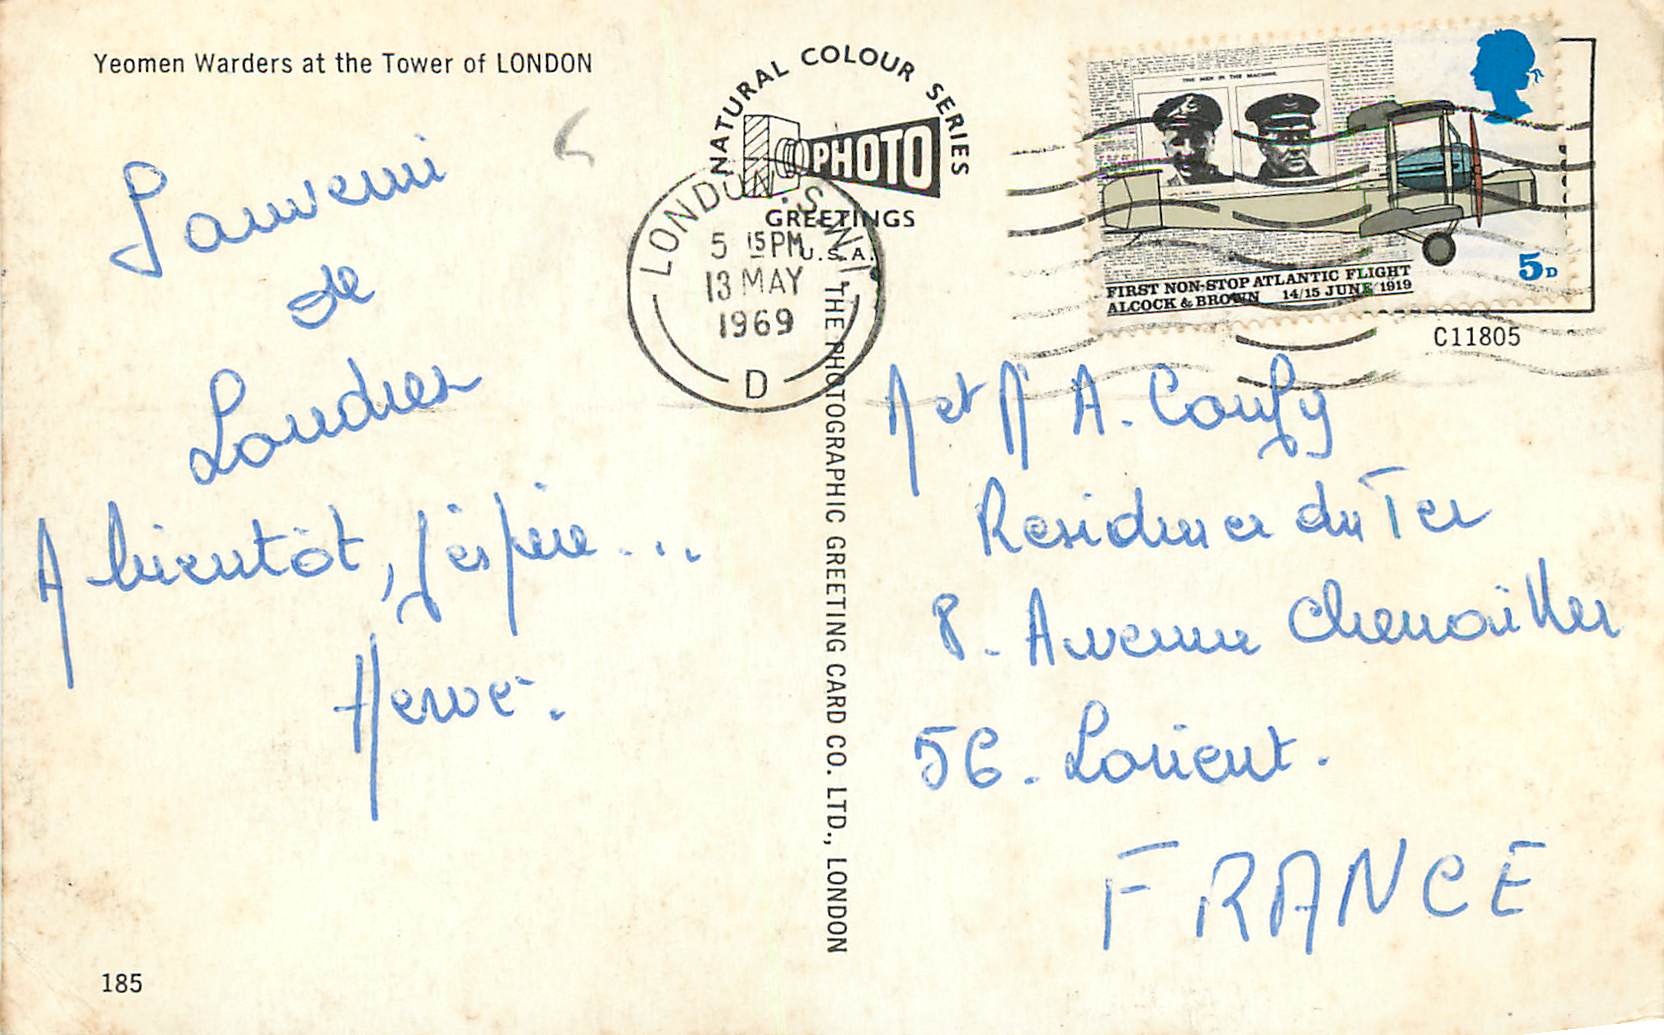 Yeomen Warders at the Tower of LONDON
Souvenir
de
Londres
A bientôt, j'espère...
Hervé.
185
NATURAL COLOUR SERIES
PHOTO
GREETINGS
U.S.A.
LONDON. S.W.1
5 15PM
13 MAY
1969
D
THE PHOTOGRAPHIC GREETING CARD CO. LTD., LONDON
THE MEN IN THE MACHINE.
FIRST NON-STOP ATLANTIC FLIGHT
ALCOCK & BROWN 14/15 JUNE 1919
5D
C11805
M et M A.
Residence du Ter
8. Avenue Chenailler
56. Lorient.
FRANCE